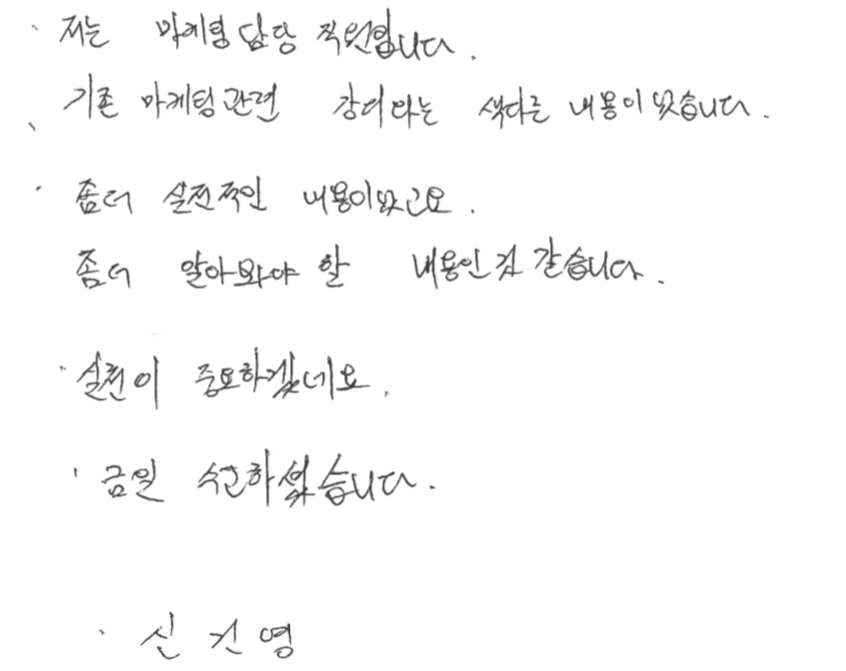 · 저는 마케팅 담당 직원입니다.
기존 마케팅관련 강의와는 색다른 내용이었습니다.
· 좀더 실전적인 내용이었고요.
좀더 알아봐야 할 내용인것 같습니다.
· 실천이 중요하겠네요.
· 금일 수고하셨습니다.
· 신건영